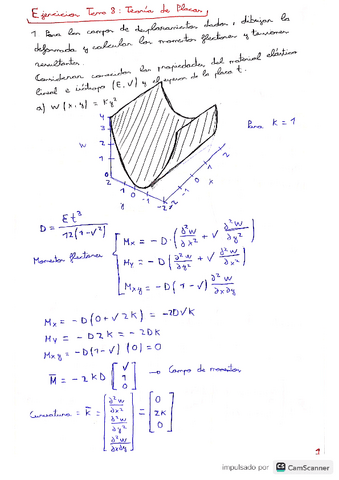 Ejercicios Tema 3: Teoría de Placas
1. Para los campos de desplazamientos dados, dibujar la
deformada y calcular los momentos flectores y tensiones
resultantes.
Considerar conocidas las propiedades del material elástico
lineal e isótropo (E, ν) y el espesor de la placa t.
a) W(x,y) = Ky²
Para K = 1
4
3
W 2
1
0
2 1 0 -1 -2
y
-2 -1 0 1 2
x
D = Et³ / 12(1-ν²)
Momentos flectores
Mx = -D·(∂²w/∂x² + ν ∂²w/∂y²)
My = -D(∂²w/∂y² + ν ∂²w/∂x²)
Mxy = -D(1-ν) ∂²w/∂x∂y
Mx = -D(0 + ν 2K) = -2DνK
My = -D2K = -2DK
Mxy = -D(1-ν)(0) = 0
M̅ = -2KD [ν 1 0] → Campo de momentos
Curvatura = K̅ = [∂²w/∂x² ∂²w/∂y² ∂²w/∂x∂y] = [0 2K 0]
1
impulsado por CS CamScanner